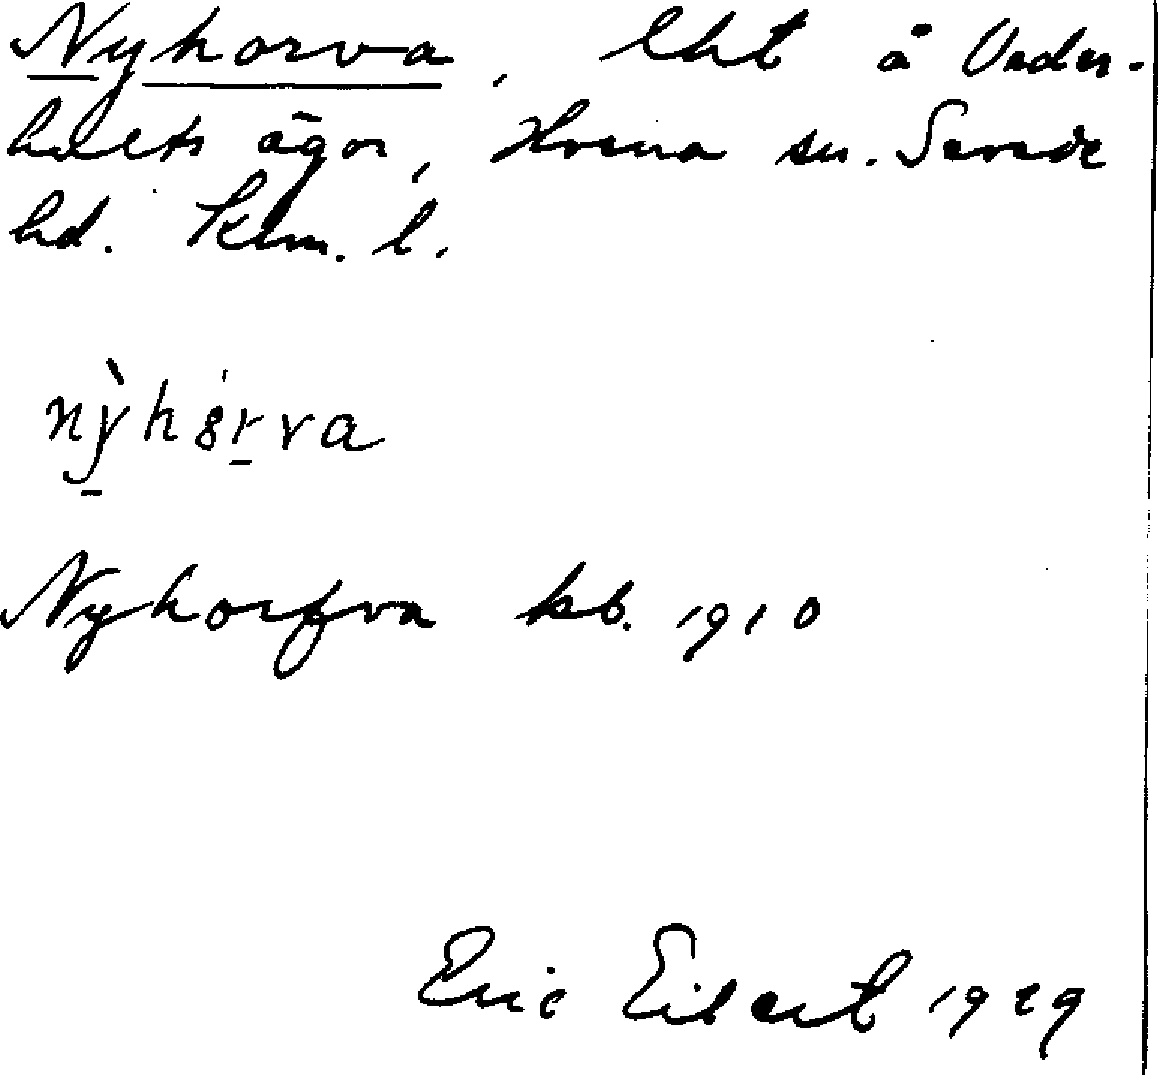 Nyhorva, lht å Vader-
hults ägor, Hvena sn. Sevede
hd. Klm. l.
nỳhȯrva
Nyhorfva kb. 1910
Eric Eibert 1929